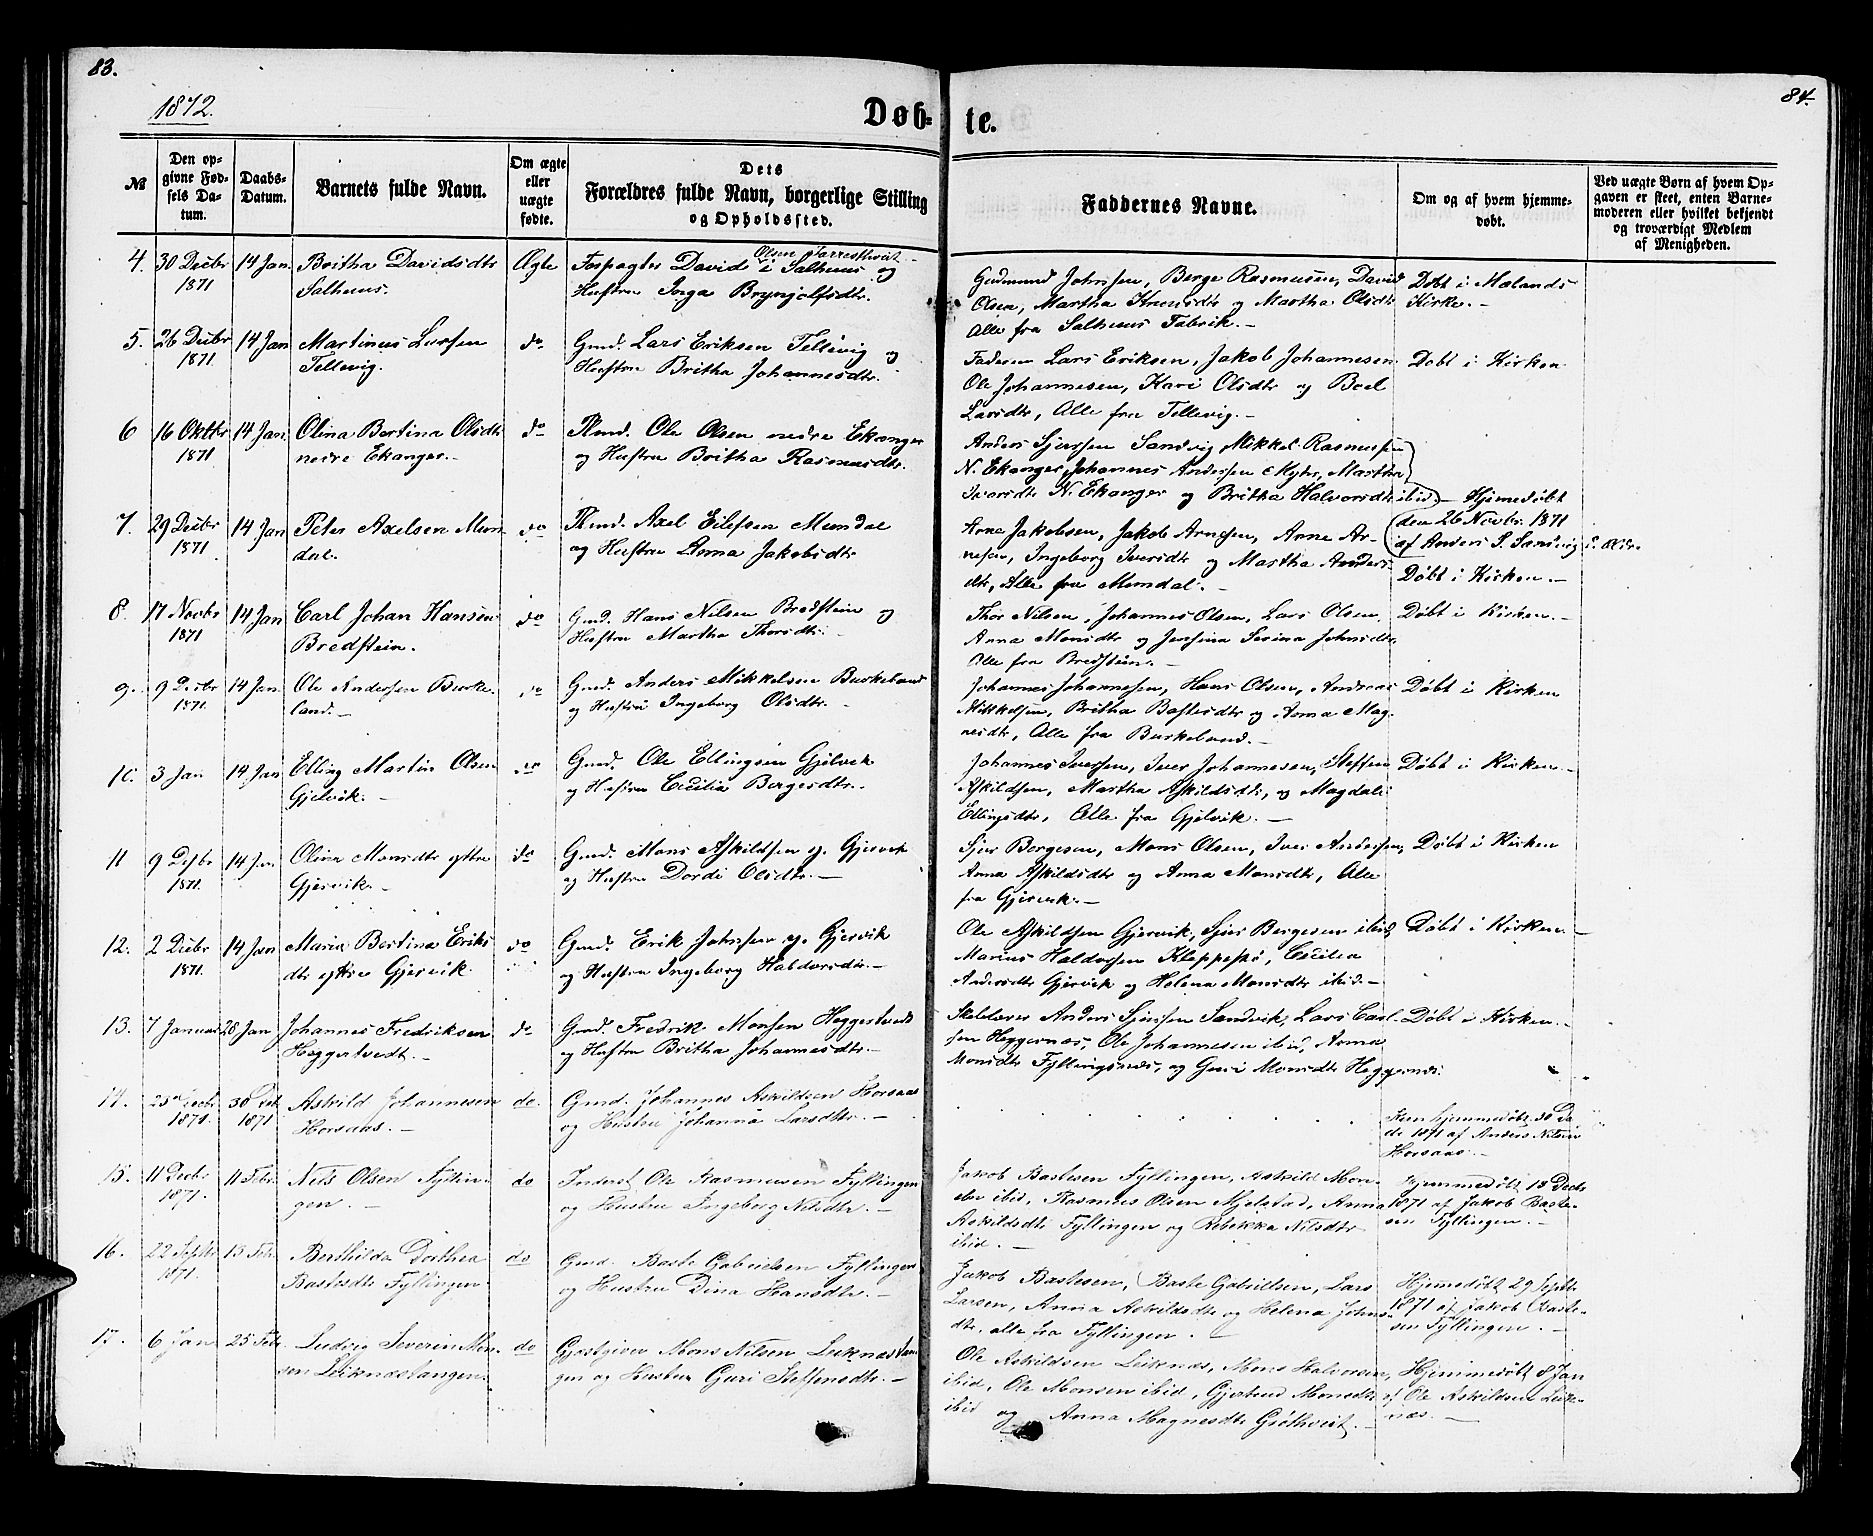 83.
84.
1872.
Døb-
te.
№
Den op-
givne Fød-
sels Da-
tum.
Daabs-
Datum.
Barnets fulde Navn.
Om ægte
eller
uægte
fødte.
Dets
Forældres fulde Navn, borgerlige Stilling
og Opholdssted.
Faddernes Navne.
Om og af hvem hjemme-
døbt.
Ved uægte Børn af hvem Op-
gaven er skeet, enten Barne-
moderen eller hvilket bekjendt
og troværdigt Medlem
af Menigheden.
4. 30 Decbr 14 Jan. Britha Davidsdtr Ægte
1871 Salhuus.
Olsen Tarrestveit
Forpagter David i Salhuus og
Hustru Inga Brynjolfsdtr.
Gudmund Johnsen, Berge Rasmussen, David
Olsen, Martha Knudsdtr og Martha Olsdtr
Alle fra Salhuus Fabrik.—
Døbt i Mælands
Kirke.—
5. 26 Decbr 14 Jan Martinus Larsen do
1871 Tellevig.
Gmd. Lars Eriksen Tellevig og
Hustru Britha Johannesdtr.
Faderen Lars Eriksen, Jakob Johannesen
Ole Johannesen, Kari Olsdtr og Boel
Larsdtr, Alle fra Tellevig.—
Døbt i Kirken
6 16 Oktbr 14 Jan. Olina Bertina Olsdtr do
1871 nedre Ekanger.—
Plmd. Ole Olsen nedre Ekanger
og Hustru Britha Rasmusdtr.
Anders Sjursen Sandvig, Mikkel Rasmussen
N. Ekanger, Johannes Andersen Myhr, Martha
Ivarsdtr N. Ekanger og Britha Halvorsdtr ibid.—
Hjemedøbt
den 26 Novbr. 1871
af Anders S. Sandvig
7. 29 Decbr 14 Jan Peter Axelsen Mun- do
1871 dal.
Plmd. Axel Eilefsen Mundal
og Hustru Anna Jakobsdtr
Arne Jakobsen, Jakob Arnesen, Arne Ar-
nesen, Ingeborg Iversdtr og Martha Anders-
dtr, Alle fra Mundal.—
Døbt i Kirken.—
8. 17 Novbr 14 Jan Carl Johan Hansen do
1871 Bredstein.
Gmd. Hans Nilsen Bredstein og
Hustru Martha Thorsdtr.—
Thor Nilsen, Johannes Olsen, Lars Olsen,
Anna Monsdtr og Jensina Serina Johnsdtr
Alle fra Bredstein.—
Døbt i Kirken.—
9. 9 Decbr 14 Jan. Ole Andersen Burke- do
1871. land.—
Gmd. Anders Mikkelsen Burkeland
og Hustru Ingeborg Olsdtr.—
Johannes Johannesen, Hans Olsen, Andreas
Mikkelsen, Britha Bastesdtr og Anna Mag-
nesdtr, Alle fra Burkeland.—
Døbt i Kirken
10. 3 Jan 14 Jan Elling Martin Olsen do
Gjelvik.—
Gmd. Ole Ellingsen Gjelvik
og Hustru Cecilia Bergesdtr.—
Johannes Iversen, Iver Johannesen, Steffen
Askildsen, Martha Askildsdtr, og Magdali
Ellingsdtr, Alle fra Gjelvik.—
Døbt i Kirken.—
11 9 Decbr 14 Jan. Olina Monsdtr yttre do
1871. Gjervik.—
Gmd. Mons Askildsen y. Gjervik
og Hustru Dordi Olsdtr.—
Sjur Bergesen, Mons Olsen, Iver Andersen,
Anna Askildsdtr og Anna Monsdtr, Alle
fra Gjervik.—
Døbt i Kirken
12. 2 Decbr 14 Jan Maria Bertina Eriks do
1871. dtr yttre Gjervik.
Gmd. Erik Johnsen y. Gjervik
og Hustru Ingeborg Haldorsdtr.—
Ole Askildsen Gjervik, Sjur Bergesen ibid,
Marius Haldorsen Kleppesø, Cecilia
Andersdtr Gjervik og Helena Monsdtr ibid.—
Døbt i Kirken.—
13. 7 Januar 28 Jan Johannes Fredriksen do
Heggertvedt.—
Gmd. Fredrik Monsen Heggertvedt
og Hustru Britha Johannesdtr.—
Skolelærer Anders Sjursen Sandvik, Lars Carl-
sen Heggernæs, Ole Johannesen ibid, Anna
Monsdtr Fyllingsnæs, og Guri Monsdtr Heggernæs.
Døbt i Kirken.—
14. 25 Decbr 30 Dec. Askild Johannesen do.
1871. 1871 Horsaas.—
Gmd. Johannes Askildsen Horsaas
og Hustru Johanna Larsdtr.—
Kun hjemmedøbt 30 De-
cbr 1871 af Anders Nilsen
Horsaas.—
15. 11 Decbr 11 Febr. Nils Olsen Fyllin- do
1871. gen.—
Inderst Ole Rasmussen Fyllingen
og Hustru Ingeborg Nilsdtr.—
Jakob Bastesen Fyllingen, Askild Mon-
sen ibid, Rasmus Olsen Mjelstad, Anna
Askildsdtr Fyllingen og Rebekka Nilsdtr
ibid.—
Hjemmedøbt 18 Decbr
1871 af Jakob Baste-
sen Fyllingen.—
16. 22 Septbr 13 Feb. Berthilda Dorthea do
1871. Bastesdtr Fyllingen.
Gmd. Baste Gabrielsen Fyllingen
og Hustru Dina Hansdtr.—
Jakob Bastesen, Baste Gabrielsen, Lars
Larsen, Anna Askildsdtr og Helena Johns-
dtr, alle fra Fyllingen.—
Hjemmedøbt 29 Septbr
1871 af Jakob Baste-
sen Fyllingen.—
17. 6 Jan 25 Febr. Ludvig Severin Mon- do
sen Leiknæstangen.
Gjestgiver Mons Nilsen Leiknæstan-
gen og Hustru Guri Steffensdtr.—
Ole Askildsen Leiknæs, Mons Halvorsen,
ibid, Ole Monsen ibid, Gjertrud Monsdtr
ibid og Anna Magnesdtr Grøthveit.—
Hjemmedøbt 8 Jan
af Ole Askildsen Leik-
næs.—